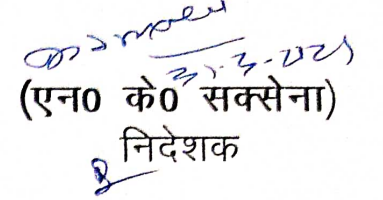 31-3-2021
(एन0 के0 सक्सेना)
निदेशक